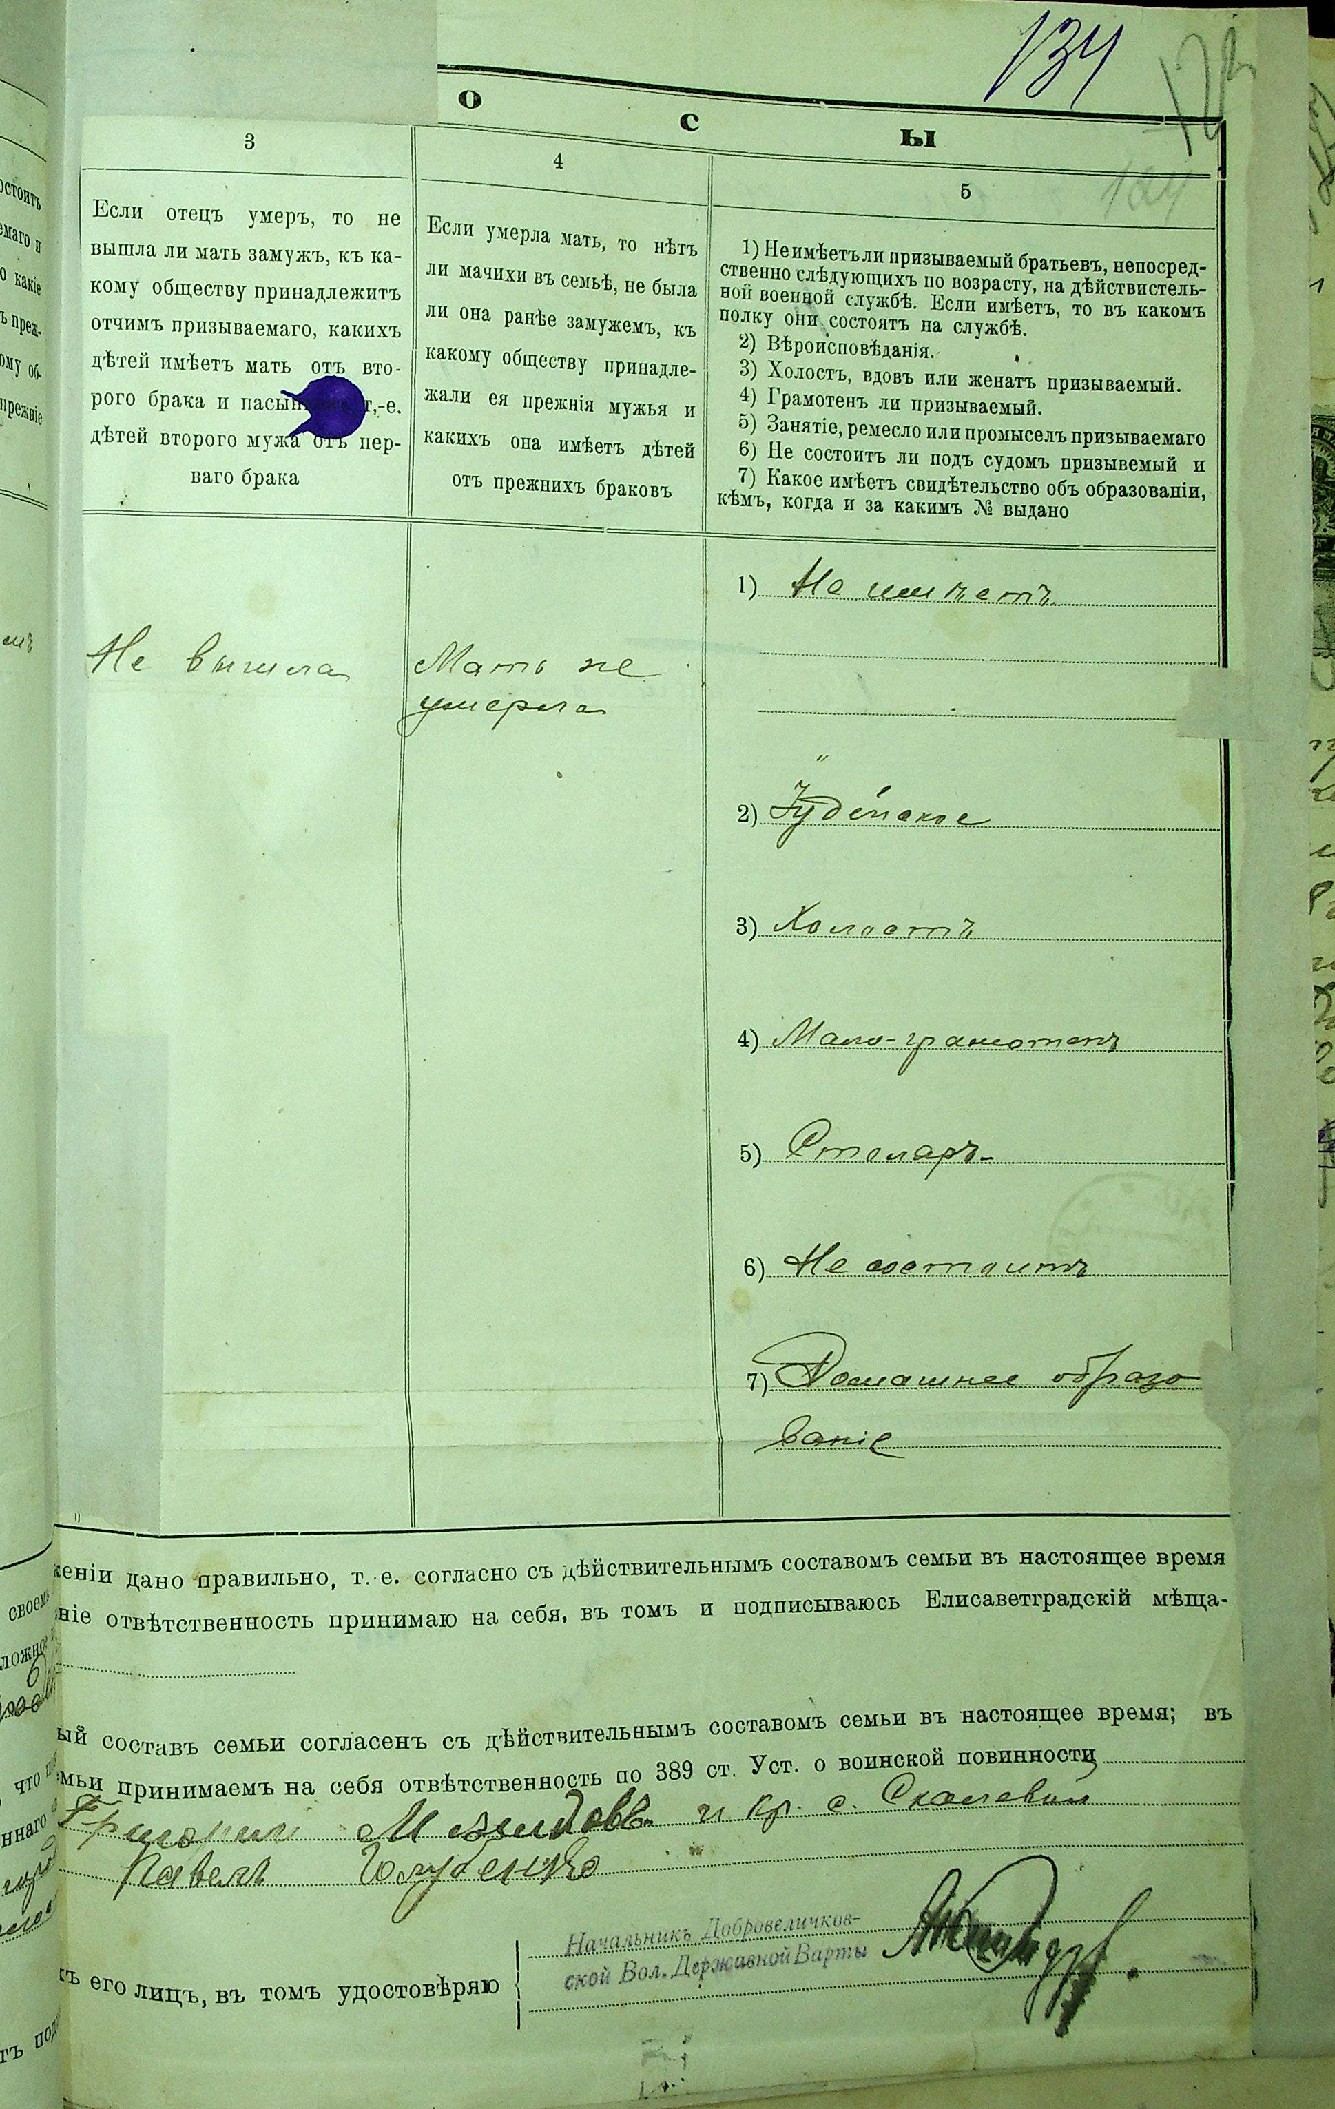 134
О С Ы
3
Если отецъ умеръ, то не
вышла ли мать замужъ, къ ка-
кому обществу принадлежитъ
отчимъ призываемаго, какихъ
дѣтей имѣетъ мать отъ вто-
рого брака и т,-е.
дѣтей второго мужа отъ пер-
ваго брака
4
Если умерла мать, то нѣтъ
ли мачихи въ семьѣ, не была
ли она ранѣе замужемъ, къ
какому обществу принадле-
жали ея прежнія мужья и
какихъ она имѣетъ дѣтей
отъ прежнихъ браковъ
5
1) Неимѣетъли призываемый братьевъ, непосред-
ственно слѣдующихъ по возрасту, на дѣйствитель-
ной военной службѣ. Если имѣетъ, то въ какомъ
полку они состоятъ на службѣ.
2) Вѣроисповѣданія.
3) Холостъ, вдовъ или женатъ призываемый.
4) Грамотенъ ли призываемый.
5) Занятіе, ремесло или промыселъ призываемаго
6) Не состоитъ ли подъ судомъ призывемый и
7) Какое имѣетъ свидѣтельство объ образованіи,
кѣмъ, когда и за какимъ № выдано
Не вышла
Мать не
умерла
1) Не имѣетъ
2) Іудейское
3) Холостъ
4) Мало-грамотенъ
5) Столяръ
6) Не состоитъ
7) Домашнее образо
ваніе
женіи дано правильно, т. е. согласно съ дѣйствительнымъ составомъ семьи въ настоящее время
ніе отвѣтственность принимаю на себя, въ томъ и подписываюсь Елисаветградскій мѣща-
ый составъ семьи согласенъ съ дѣйствительнымъ составомъ семьи въ настоящее время; въ
мьи принимаемъ на себя отвѣтственность по 389 ст. Уст. о воинской повинности
Григорій и кр. с.
Павелъ Голубенко
ъ его лицъ, въ томъ удостовѣряю
Начальникъ Добровеличков-
ской Вол. Державной Варты